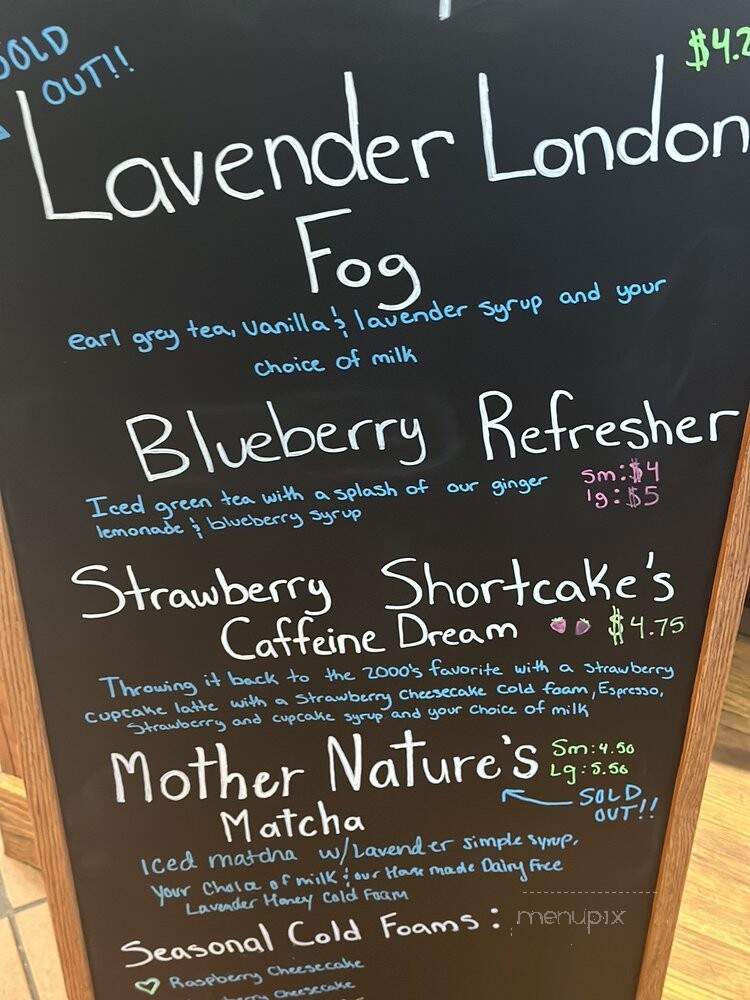 SOLD
OUT!!
$4.2
Lavender London
Fog
earl grey tea, vanilla & lavender syrup and your
choice of milk
Blueberry Refresher
Iced green tea with a splash of our ginger
lemonade & blueberry syrup
Sm: $4
lg: $5
Strawberry Shortcake's
Caffeine Dream $4.75
Throwing it back to the 2000's favorite with a strawberry
cupcake latte with a strawberry cheesecake cold foam, Espresso,
Strawberry and cupcake syrup and your choice of milk
Mother Nature's
Sm: 4.50
Lg: 5.50
Matcha
SOLD
OUT!!
Iced matcha w/Lavender simple syrup,
your Choice of milk & our House made Dairy Free
Lavender Honey Cold Foam
Seasonal Cold Foams:
Raspberry Cheesecake
Cheesecake
menupix